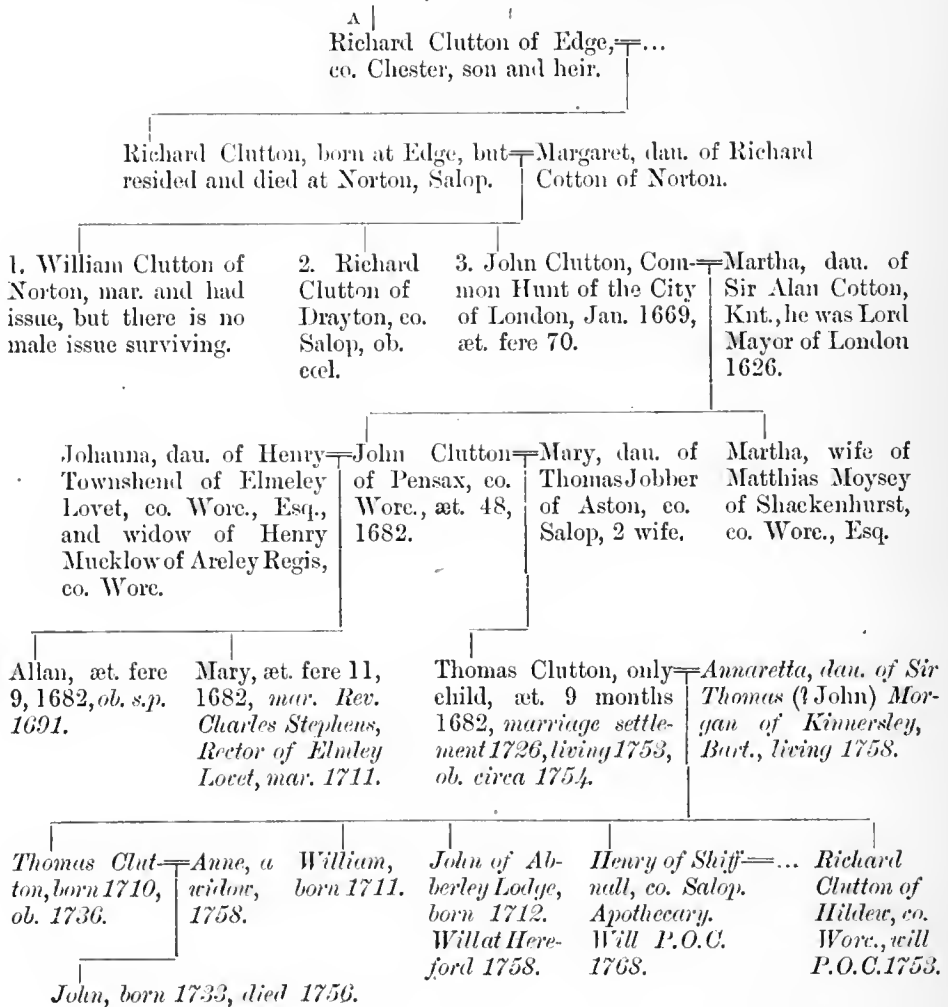 A
Richard Clutton of Edge,=...
co. Chester, son and heir.
Richard Clutton, born at Edge, but=Margaret, dau. of Richard
resided and died at Norton, Salop. Cotton of Norton.
1. William Clutton of
Norton, mar. and had
issue, but there is no
male issue surviving.
2. Richard
Clutton of
Drayton, co.
Salop, ob.
cœl.
3. John Clutton, Com-
mon Hunt of the City
of London, Jan. 1669,
æt. fere 70.
=Martha, dau. of
Sir Alan Cotton,
Knt., he was Lord
Mayor of London
1626.
Johanna, dau. of Henry
Townshend of Elmeley
Lovet, co. Worc., Esq.,
and widow of Henry
Mucklow of Areley Regis,
co. Worc.
=John Clutton
of Pensax, co.
Worc., æt. 48,
1682.
=Mary, dau. of
Thomas Jobber
of Aston, co.
Salop, 2 wife.
Martha, wife of
Matthias Moysey
of Shackenhurst,
co. Worc., Esq.
Allan, æt. fere
9, 1682, ob. s.p.
1691.
Mary, æt. fere 11,
1682, mar. Rev.
Charles Stephens,
Rector of Elmley
Lovet, mar. 1711.
Thomas Clutton, only
child, æt. 9 months
1682, marriage settle-
ment 1726, living 1753,
ob. circa 1754.
=Annaretta, dau. of Sir
Thomas (? John) Mor-
gan of Kinnersley,
Bart., living 1758.
Thomas Clut-
ton, born 1710,
ob. 1736.
=Anne, a
widow,
1758.
William,
born 1711.
John of Ab-
berley Lodge,
born 1712.
Will at Here-
ford 1758.
Henry of Shiff-
nall, co. Salop.
Apothecary.
Will P.O.C.
1768.
=...
Richard
Clutton of
Hildew, co.
Worc., will
P.O.C. 1753.
John, born 1733, died 1756.